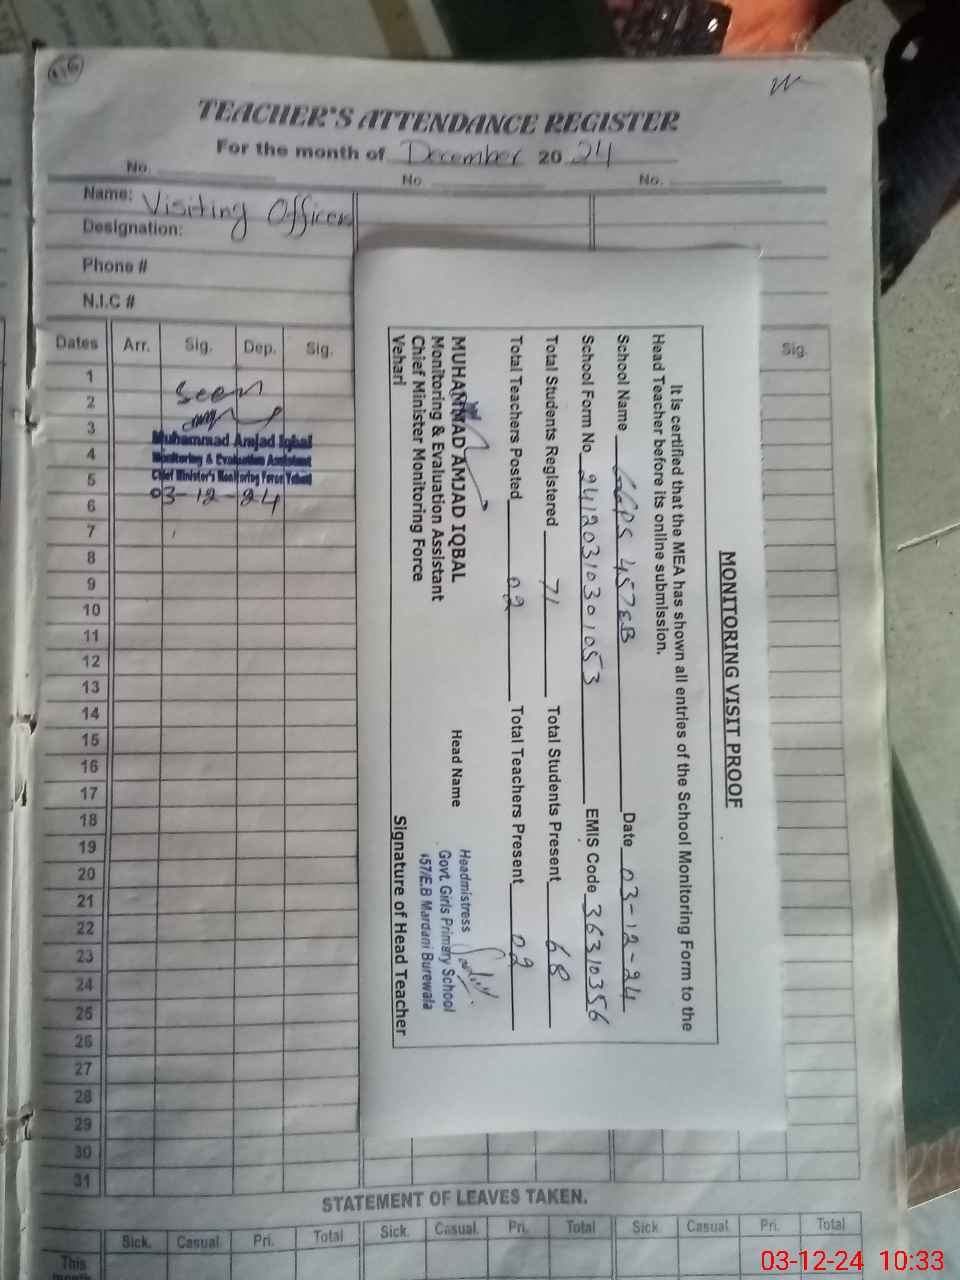 TEACHER'S ATTENDANCE REGISTER
For the month of December 2024
No. No. No.
Name: Visiting Officer
Designation:
Phone #
N.I.C #
Dates Arr. Sig. Dep. Sig. Sig.
1
2
3
4
5
6
7
8
9
10
11
12
13
14
15
16
17
18
19
20
21
22
23
24
25
26
27
28
29
30
31
Seen
Muhammad Amjad Iqbal
Monitoring & Evaluation Assistant
Chief Minister's Monitoring Force Vehari
03-12-24
MONITORING VISIT PROOF
It is certified that the MEA has shown all entries of the School Monitoring Form to the
Head Teacher before its online submission.
School Name GGPS 457EB Date 03-12-24
School Form No 24120310301053 EMIS Code 36310356
Total Students Registered 71 Total Students Present 68
Total Teachers Posted 02 Total Teachers Present 02
MUHAMMAD AMJAD IQBAL Head Name
Monitoring & Evaluation Assistant
Chief Minister Monitoring Force
Vehari
Headmistress
Govt. Girls Primary School
457/E.B Mardani Burewala
Signature of Head Teacher
STATEMENT OF LEAVES TAKEN.
Sick. Casual. Pri. Total Sick. Casual. Pri. Total Sick. Casual Pri. Total
This
month
03-12-24 10:33